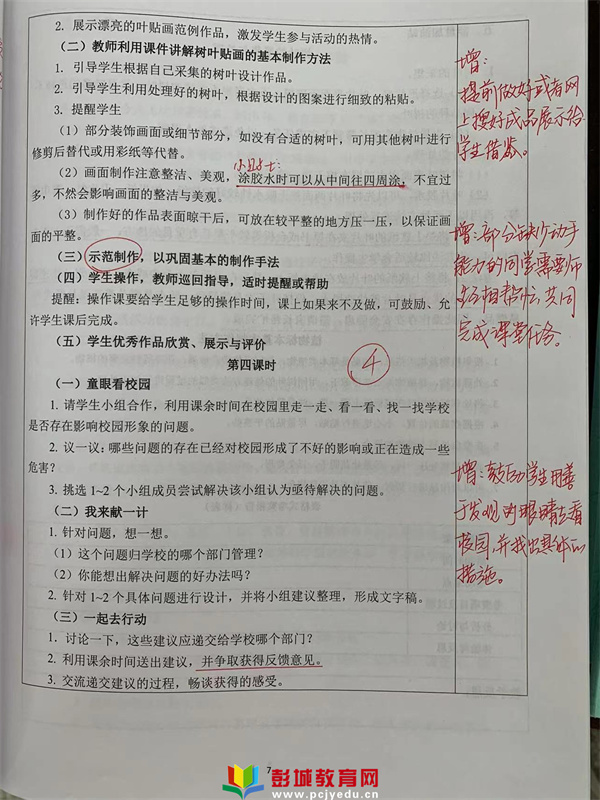 2. 展示漂亮的叶贴画范例作品，激发学生参与活动的热情。
（二）教师利用课件讲解树叶贴画的基本制作方法
1. 引导学生根据自己采集的树叶设计作品。
2. 引导学生利用处理好的树叶，根据设计的图案进行细致的粘贴。
3. 提醒学生
（1）部分装饰画面或细节部分，如没有合适的树叶，可用其他树叶进行
修剪后替代或用彩纸等代替。
小贴士：
（2）画面制作注意整洁、美观，涂胶水时可以从中间往四周涂，不宜过
多，不然会影响画面的整洁与美观。
（3）制作好的作品表面晾干后，可放在较平整的地方压一压，以保证画
面的平整。
（三）示范制作，以巩固基本的制作手法
（四）学生操作，教师巡回指导，适时提醒或帮助
提醒：操作课要给学生足够的操作时间，课上如果来不及做，可鼓励、允
许学生课后完成。
（五）学生优秀作品欣赏、展示与评价
第四课时
④
（一）童眼看校园
1. 请学生小组合作，利用课余时间在校园里走一走、看一看、找一找学校
是否存在影响校园形象的问题。
2. 议一议：哪些问题的存在已经对校园形成了不好的影响或正在造成一些
危害？
3. 挑选 1~2 个小组成员尝试解决该小组认为亟待解决的问题。
（二）我来献一计
1. 针对问题，想一想。
（1）这个问题归学校的哪个部门管理？
（2）你能想出解决问题的好办法吗？
2. 针对 1~2 个具体问题进行设计，并将小组建议整理，形成文字稿。
（三）一起去行动
1. 讨论一下，这些建议应递交给学校哪个部门？
2. 利用课余时间送出建议，并争取获得反馈意见。
3. 交流递交建议的过程，畅谈获得的感受。
增：
提前做好或者网
上搜好成品展示给
学生借鉴。
增：部分缺少动手
能力的同学需要师
生互相帮忙，共同
完成课堂任务。
增：鼓励学生用善
于发现的眼睛去看
校园，并找出具体的
措施。
7
彭城教育网
www.pcjyedu.cn